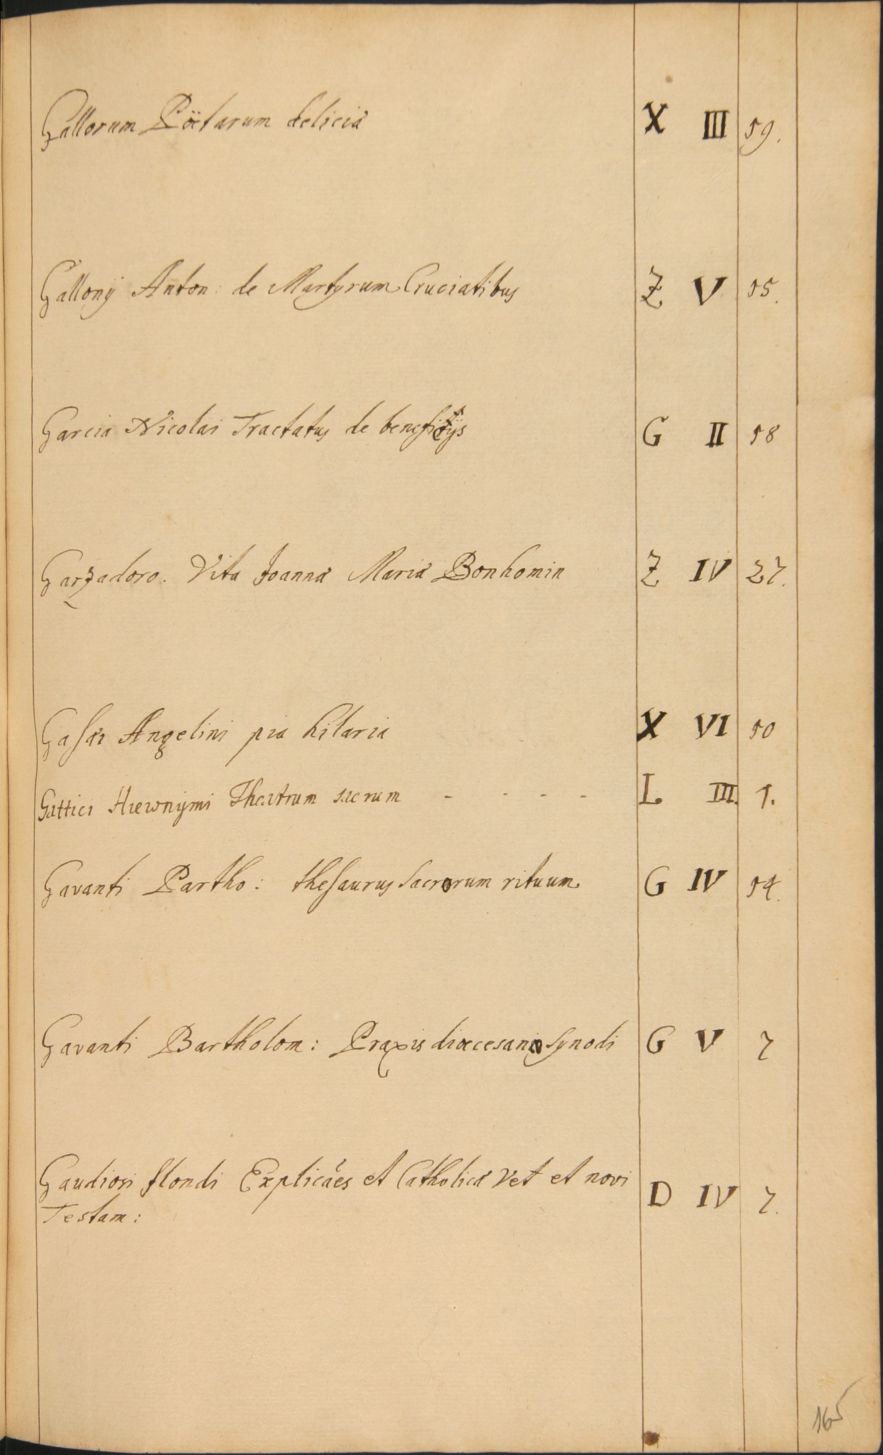 Gallorum Pöetarum deliciæ X III 59.
Gallonij Anton: de Martyrum Cruciatibus Z V 15.
Garcia Nicolai Tractatus de beneficijs G II 18
Garzadoro. Vita Joannæ Mariæ Bonhomin Z IV 27.
Angelini pia hilaria X VI 50
Gattici Hieronymi Theatrum sacrum - - - - L III. 1.
Gavanti Partho: thesaurus sacrorum rituum G IV 14.
Gavanti Bartholom: Praxis diœcesanæ Synodi G V 7
Gaudiosi flondi Explicães et Catholicæ Vet et novi D IV 7.
Testam:
165